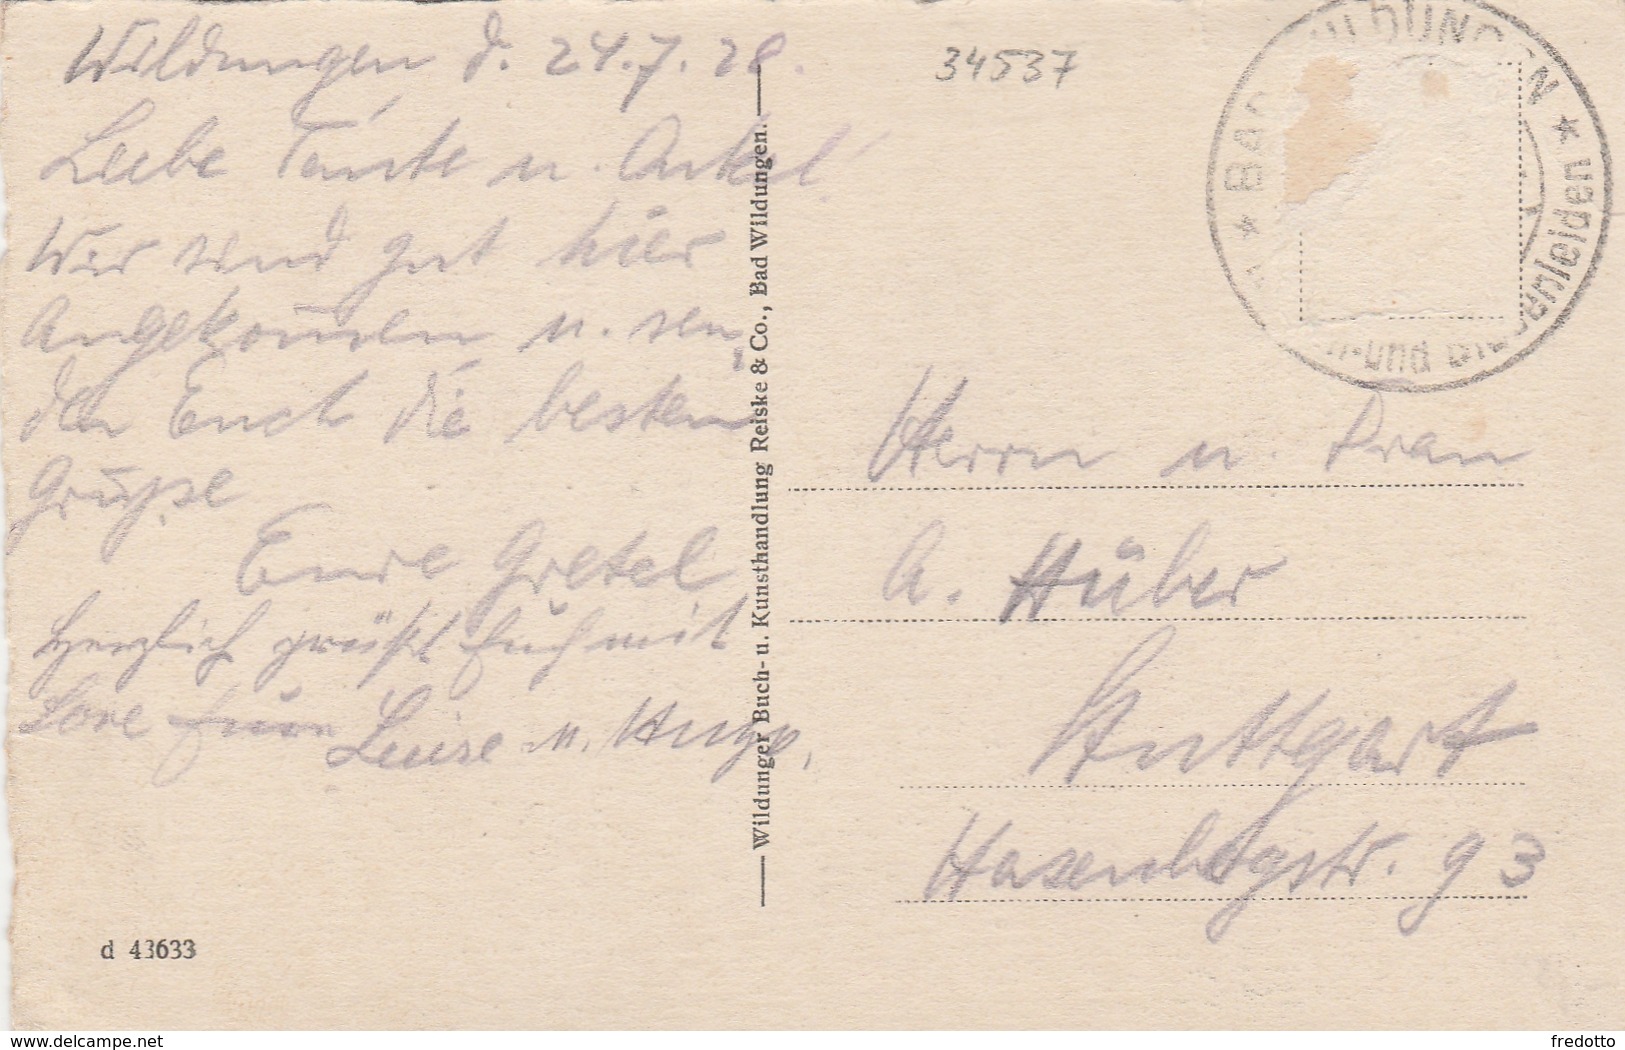 Wildungen d. 24.7.28.
Liebe Tante u. Onkel!
Wir sind gut hier
Angekom̄en u. sen,
den Euch die besten
Grüße
Eure Gretel
Herzlich grüßt Euch mit
Lore Luise u. Hugo,
d 43633
Wildunger Buch- u. Kunsthandlung Reiske & Co., Bad Wildungen.
34537
BAD WILDUNGEN ★ Nierenleiden ★
Herrn u. Frau
A. Hüber
Stuttgart
Hasenbergstr. 93
www.delcampe.net
fredotto